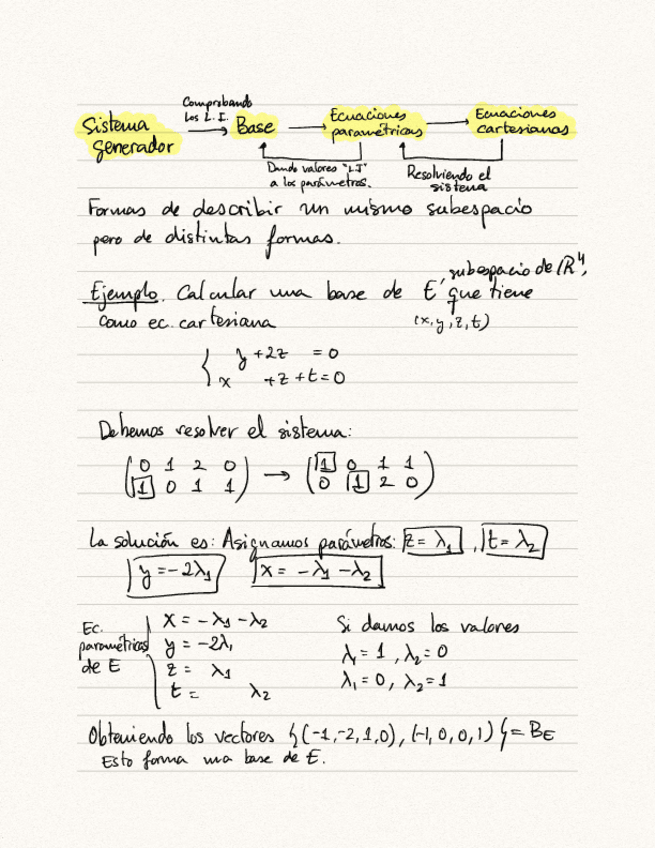 Comprobando
los L.I.
Sistema generador → Base → Ecuaciones paramétricas → Ecuaciones cartesianas
Dando valores "LI"
a los parámetros.
Resolviendo el
sistema
Formas de describir un mismo subespacio
pero de distintas formas.
subespacio de ℝ⁴,
Ejemplo. Calcular una base de E, que tiene
como ec. cartesiana (x,y,z,t)
{ y+2z = 0
x +z+t=0
Debemos resolver el sistema:
(0 1 2 0) → (1 0 1 1)
(1 0 1 1) (0 1 2 0)
La solución es: Asignamos parámetros: z=λ₁ , t=λ₂
y=-2λ₁ x = -λ₁-λ₂
Ec. paramétricas de E
x = -λ₁-λ₂
y = -2λ₁
z = λ₁
t = λ₂
Si damos los valores
λ₁=1, λ₂=0
λ₁=0, λ₂=1
Obteniendo los vectores {(-1,-2,1,0), (-1,0,0,1)}=B_E
Esto forma una base de E.